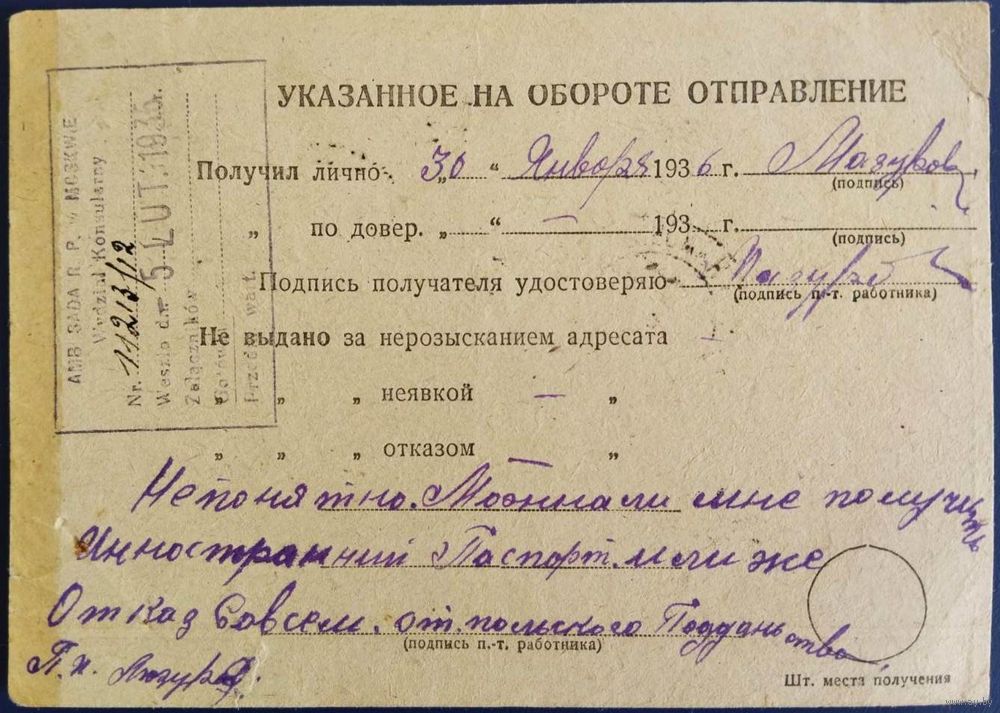 УКАЗАННОЕ НА ОБОРОТЕ ОТПРАВЛЕНИЕ
Получил лично „30“ Января 1936 г. Мазуров
(подпись)
„ по довер. „ “ — 193 г.
(подпись)
Подпись получателя удостоверяю
(подпись п.-т. работника)
Не выдано за нерозысканием адресата —
„ „ „ неявкой — „
„ „ „ отказом — „
Непонятно. Можнали мне получить
Инностранний Паспорт. или же
Отказ Совсем. от. польского Подданьство
(подпись п.-т. работника)
П. Н.
Шт. места получения
AMBASADA R. P. w MOSKWIE
Wydział Konsularny
Nr. 11213/12
Weszło d. 5 LUT. 1936 r.
Załączników